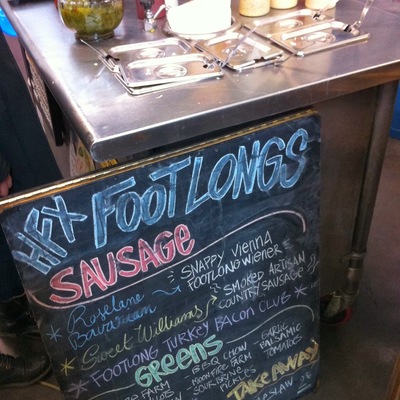 HFX FOOTLONGS
SAUSAGE
Roselane Bavarian
SNAPPY VIENNA
FOOTLONG WIENER
Sweet Williams
SMOKED ARTISAN
COUNTRY SAUSAGE
FOOTLONG TURKEY BACON CLUB
GREENS
FARM
BBQ CHOW
MOONFIRE FARM
SOUR BRINE
PICKLES
GARLIC
BALSAMIC
TOMATOES
TAKE AWAY
SLAW